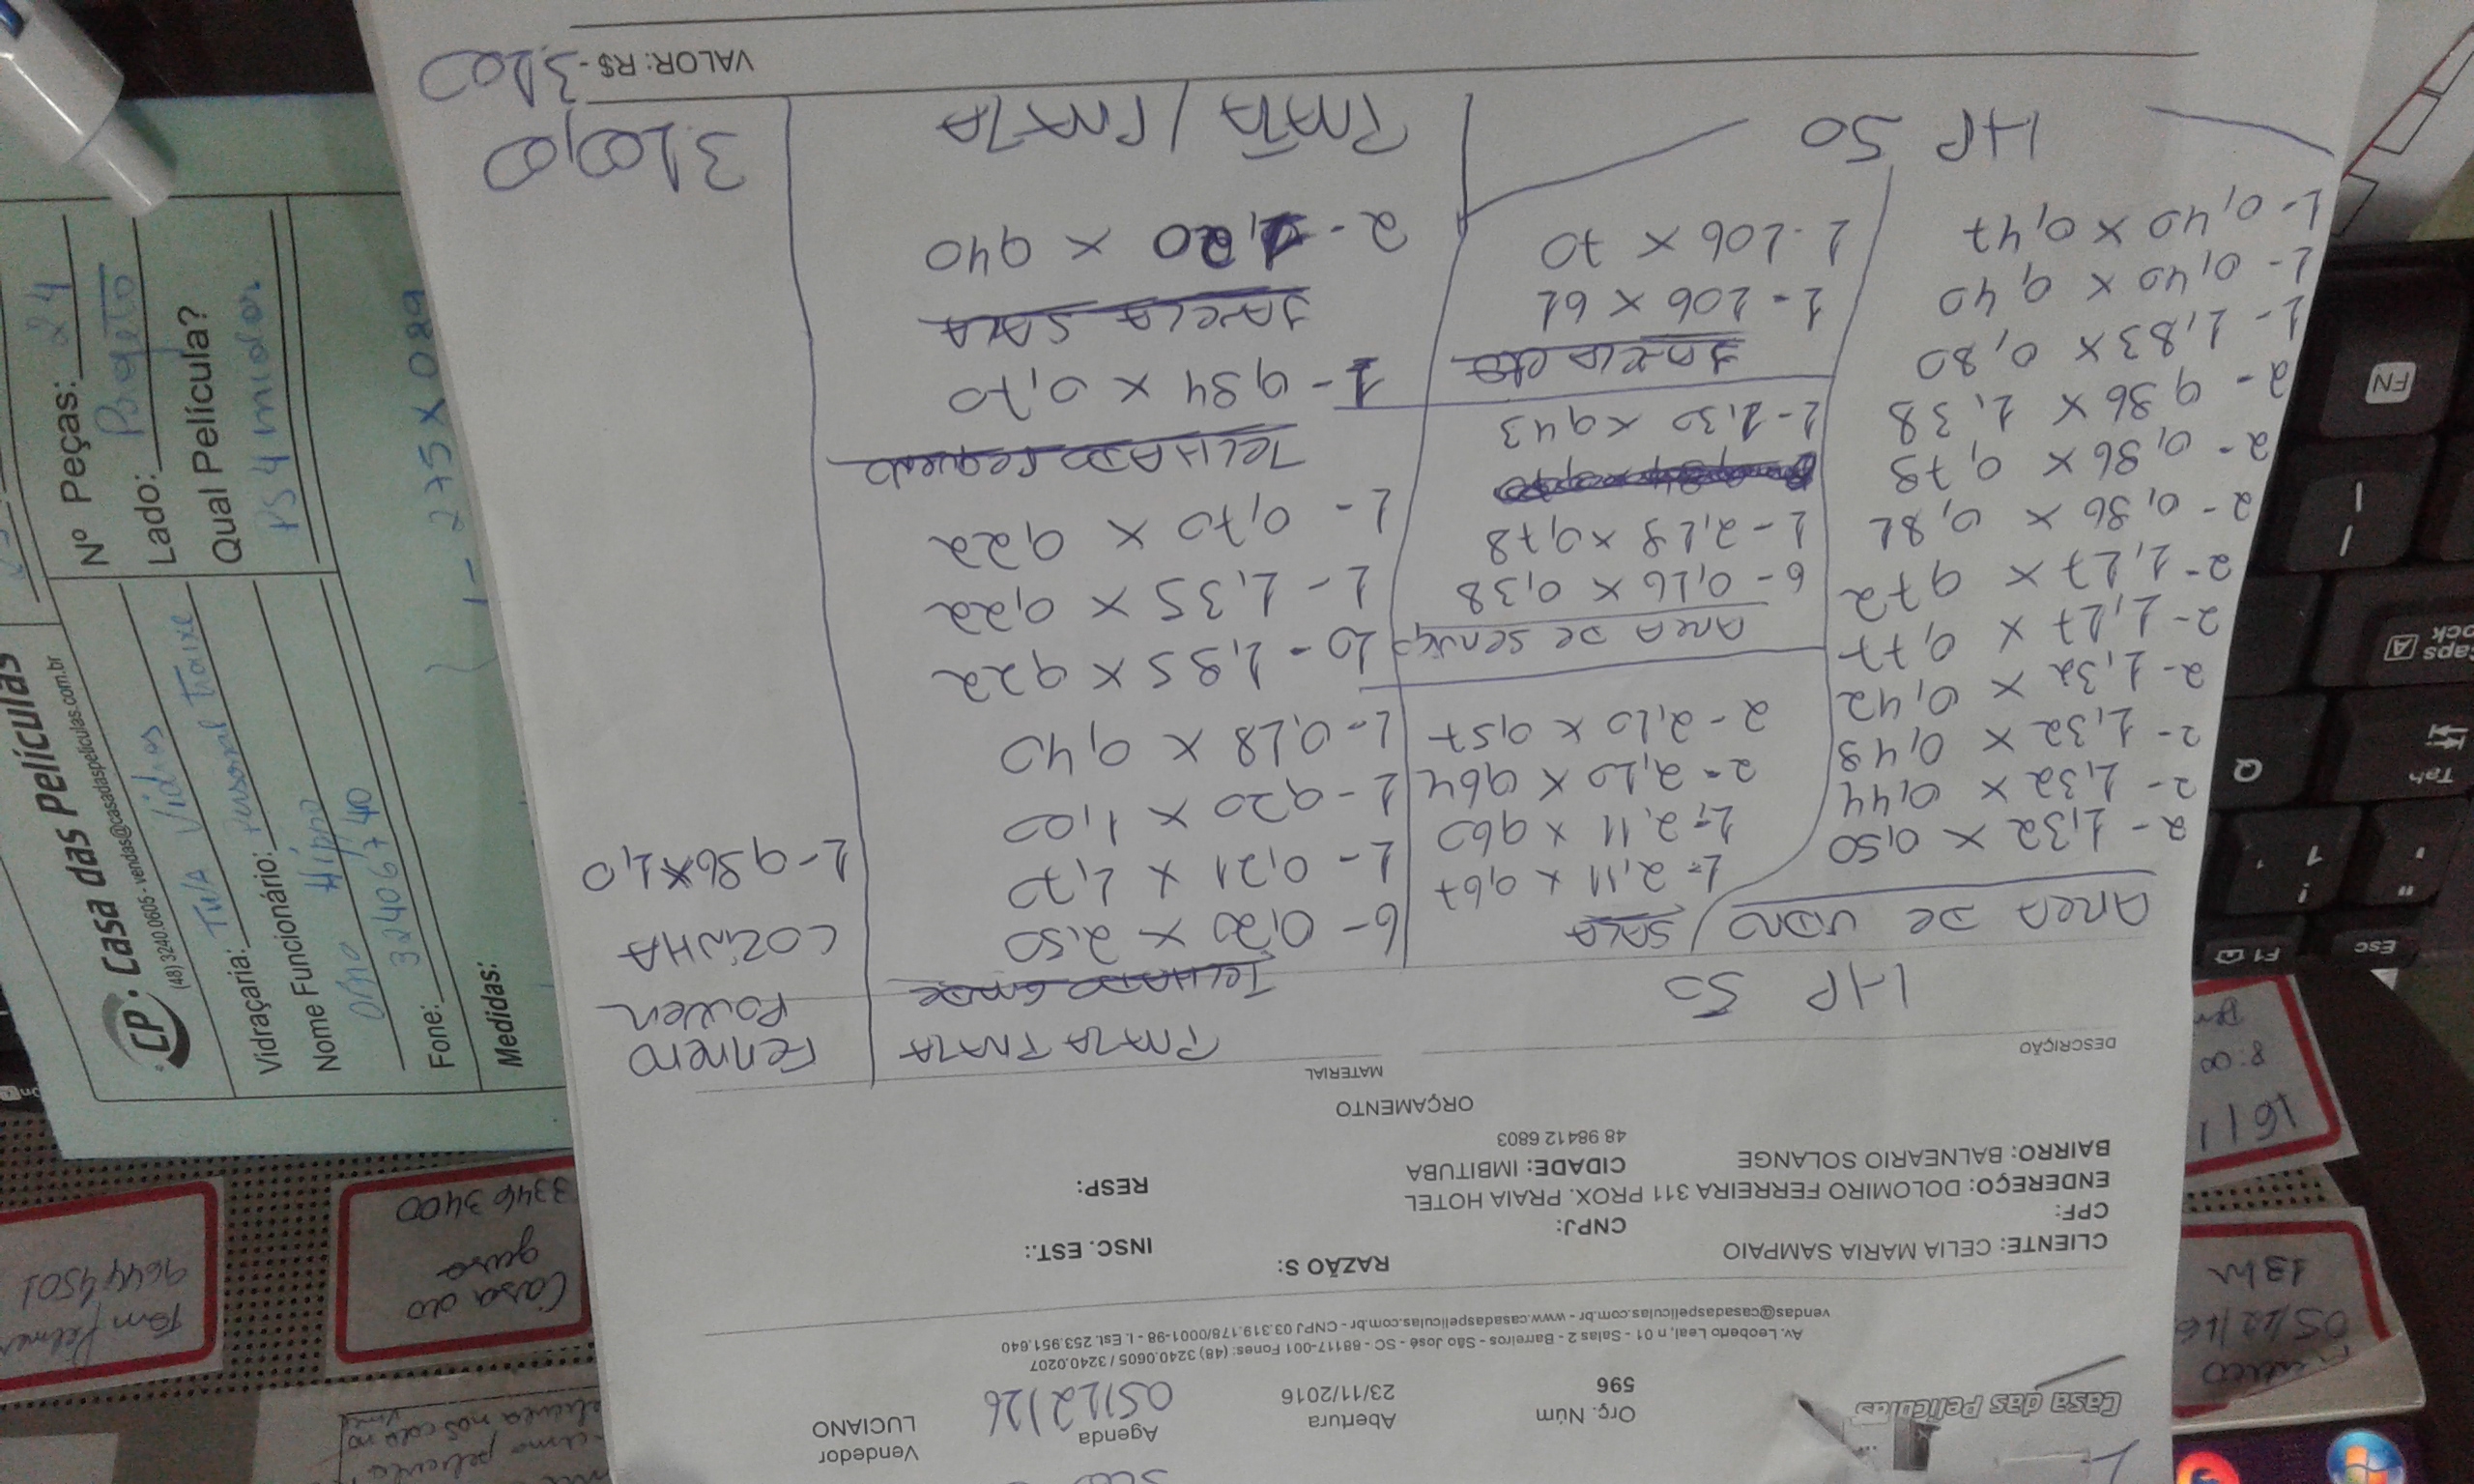 Casa das Películas
Orç. Núm
596
Abertura
23/11/2016
Agenda
05/12/16
Vendedor
LUCIANO
Av. Leoberto Leal, n 01 - Salas 2 - Barreiros - São José - SC - 88117-001 Fones: (48) 3240.0605 / 3240.0207
vendas@casadaspeliculas.com.br - www.casadaspeliculas.com.br - CNPJ 03.319.178/0001-98 - I. Est. 253.951.640
CLIENTE: CELIA MARIA SAMPAIO
RAZÃO S:
CPF:
CNPJ:
INSC. EST.:
ENDEREÇO: DOLOMIRO FERREIRA 311 PROX. PRAIA HOTEL
BAIRRO: BALNEARIO SOLANGE
CIDADE: IMBITUBA
RESP:
48 98412 6803
ORÇAMENTO
DESCRIÇÃO
MATERIAL
HP 50
AREA DE VIDRO / SALA
2- 1,32 x 0,50
2- 1,32 x 0,44
2- 1,32 x 0,48
2- 1,32 x 0,42
2- 1,17 x 0,77
2- 1,17 x 0,72
2- 0,86 x 0,81
2- 0,86 x 0,78
2- 0,86 x 1,38
1- 1,83 x 0,80
1- 0,40 x 0,40
1- 0,40 x 0,47
HP 50
1- 2,11 x 0,67
1- 2,11 x 0,60
2- 2,10 x 0,64
2- 2,10 x 0,57
AREA DE SERVIÇO
6- 0,16 x 0,38
1- 2,18 x 0,78
1- 1,30 x 0,43
1- 106 x 61
1- 106 x 70
PRATA PRATA
TELHADO GRANDE
6- 0,20 x 2,50
1- 0,21 x 1,70
1- 0,20 x 1,00
1- 0,18 x 0,40
10- 1,85 x 0,22
1- 1,35 x 0,22
1- 0,70 x 0,22
TELHADO PEQUENO
1- 0,84 x 0,70
JANELA SALA
2- 1,20 x 0,40
PRATA / PRATA
COZINHA
1- 0,86 x 1,0
3100,00
VALOR: R$ - 3100
CP. Casa das Películas
(48) 3240.0605 - vendas@casadaspeliculas.com.br
Vidraçaria:
Tua Vidros
Personal traixe
Nome Funcionário:
Fone: 32406740
Medidas:
1- 275 x 089
Nº Peças: 24
Lado: Projeto
Qual Película?
PS 4 miclor
Casa do
gesso
3346 3400
96444501
05/12/16
13hr
16/1
8:00
Esc
F1
Tab
Q
Caps
Lock
A
FN